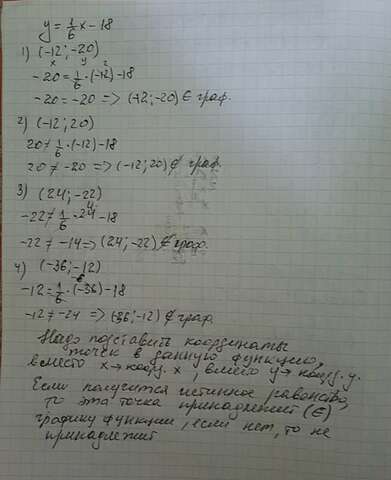 y = 1/6 x - 18
1) (-12; -20)
x y
-20 = 1/6 · (-12) - 18
-20 = -20 => (-12; -20) ∈ граф.
2) (-12; 20)
20 ≠ 1/6 · (-12) - 18
20 ≠ -20 => (-12; 20) ∉ граф.
3) (24; -22)
4
-22 ≠ 1/6 · 24 - 18
-22 ≠ -14 => (24; -22) ∉ граф.
4) (-36; -12)
-6
-12 = 1/6 · (-36) - 18
-12 ≠ -24 => (-36; -12) ∉ граф.
Надо подставить координаты
точек в данную функцию,
вместо x → коорд. x, вместо y → коорд. y.
Если получится истинное равенство,
то эта точка принадлежит (∈)
графику функции, если нет, то не
принадлежит